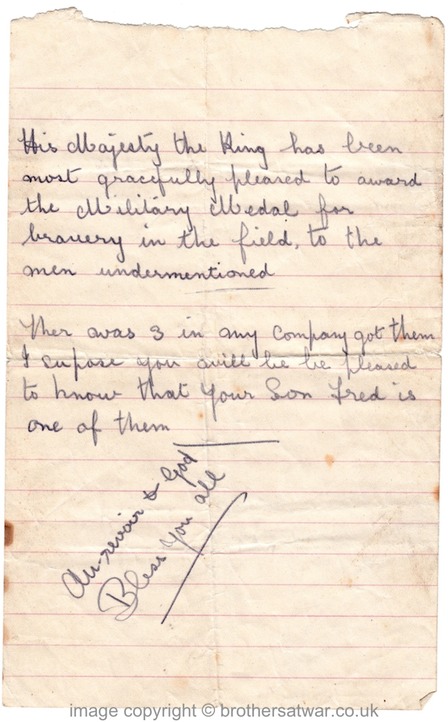 His Majesty the King has been
most gracefully pleased to award
the Military Medal for
bravery in the field, to the
men undermentioned
Ther was 3 in my Company got them
I supose you will be be pleased
to know that Your Son Fred is
one of them
Au-revoir & God
Bless You all
image copyright © brothersatwar.co.uk